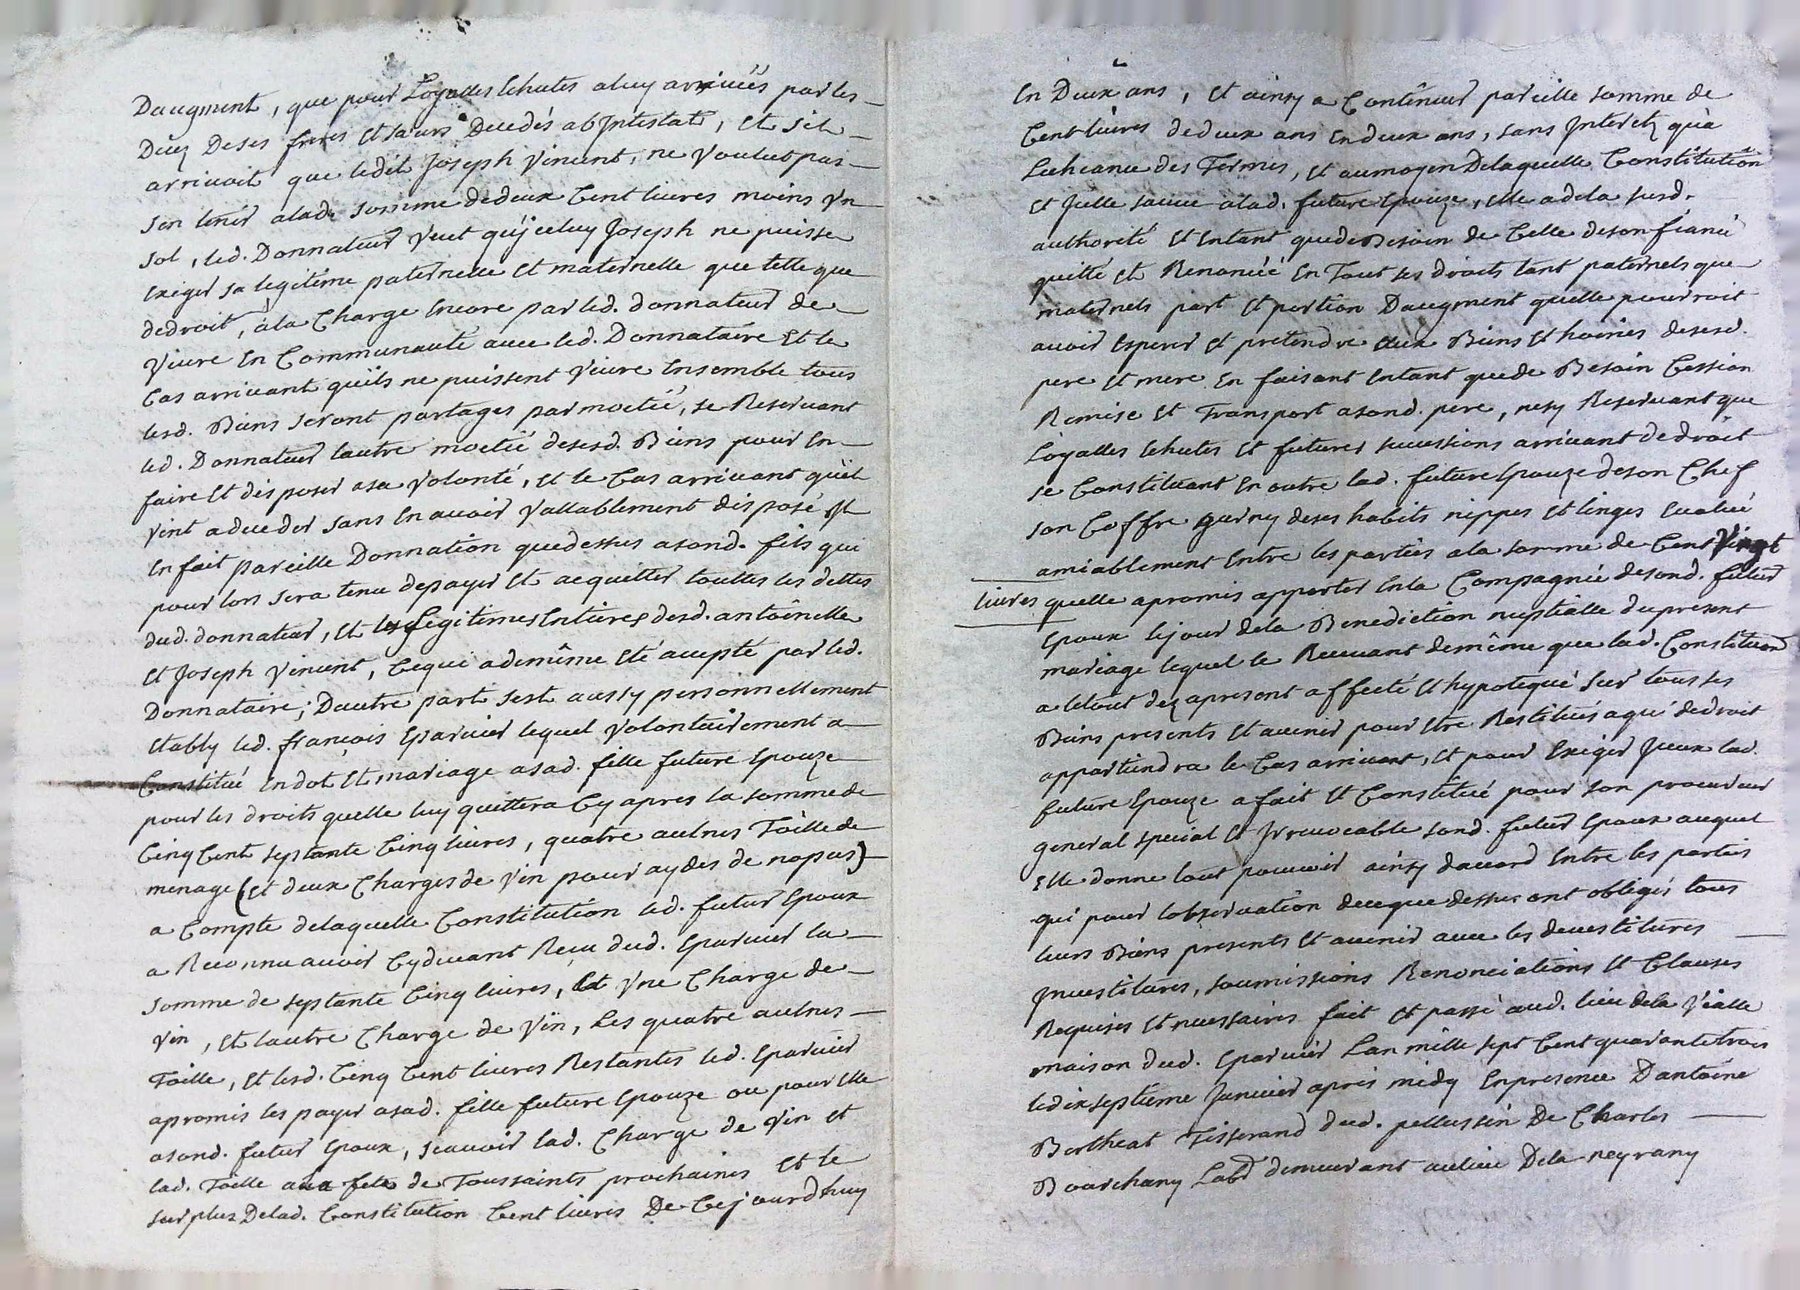 Daugment, que pour Loyalles Echutes a luy arrivées par les
Deces De ses freres et sœurs Decedés abIntestat, et s'il
arrivoit que ledit Joseph Vincent, ne voulut pas
s'en tenir a lad. somme de deux Cent livres moins un
sol, led. Donnateur veut qu'jceluy Joseph ne puisse
Exiger sa legitime paternelle et maternelle que telle que
de droit, a la Charge Encore par led. donnateur de
Vivre En Communauté avec led. Donnataire Et le
Cas arrivant quils ne puissent Vivre Ensemble tous
lesd. Biens seront partages par moetié, se Reservant
led. Donnateur lautre moetié desesd. Biens pour En
faire Et disposer a sa Volonté, et le Cas arrivant qu'il
vint a deceder sans En avoir Vallablement disposé Il
En fait pareille Donnation que dessus a sond. fils qui
pour lors sera tenu de payer Et acquitter touttes les dettes
dud. donnateur, Et les Legitimes Entieres desd. antoinette
Et Joseph Vincent, Ce qui a de même Eté accepté par led.
Donnataire; Dautre part sest aussy personnellement
Etably led. françois Eparvier lequel Volontairement a
Constitué En dot Et mariage a sad. fille future Epouze
pour les droits quelle luy quittera Cy apres la somme de
Cinq Cent septante Cinq livres, quatre aulnes Toille de
menage (Et deux Charges de vin pour aydes de nopces)
a Compte de laquelle Constitution led. futur Epoux
a Reconnu avoir Cydevant Recu dud. Eparvier la
somme de septante Cinq livres, Et Une Charge de
Vin, Et lautre Charge de Vin, Les quatre aulnes
Toille, Et lesd. Cinq Cent livres Restantes led. Eparvier
a promis les payer a sad. fille future Epouze ou pour Elle
a sond. futur Epoux, scavoir lad. Charge de Vin et
lad. Toille aux fete de Toussaints prochaines Et le
surplus De lad. Constitution Cent livres De Cejourdhuy
En Deux ans, Et ainsy a Continuer pareille somme de
Cent livres de deux ans En deux ans, sans Interetz qu'a
Lecheance des Termes, Et au moyen De laquelle Constitution
Et Jcelle sauve a lad. future Epouze, elle a de la susd.
authorité Et Entant que de Besoin de Celle de son fiancé
quitté Et Renoncé En Tous ses droits tant paternels que
maternels part Et portion Daugment quelle pourroit
avoir Esperer Et pretendre aux Biens Et hoiries desesd.
pere Et mere En faisant Entant que de Besoin Cession
Remise Et Transport a sond. pere, nesy Reservant que
Loyalles Echutes Et futures successions arrivant de droit
se Constituant En outre lad. future Epouze de son Chef
son Coffre garny de ses habits nippes Et linges Evalué
amiablement Entre les parties a la somme de Cent Vingt
livres quelle a promis apporter En la Compagnie de sond. futur
Epoux le jour de la Benediction nuptialle du present
mariage lequel le Recevant de même que lad. Constitution
a le tout dez a present affecté Et hypotequé sur tous ses
Biens presents Et avenir pour Etre Restitués a qui de droit
appartiendra le Cas arrivant, Et pour Exiger Jceux lad.
future Epouze a fait Et Constitué pour son procureur
general special Et Irrevocable sond. futur Epoux auquel
Elle donne tout pouvoir ainsy daccord Entre les parties
qui pour lobservation de ce que dessus ont obligés tous
leurs Biens presents Et avenir avec les devestitures
Jnvestitures, soumissions Renonciations Et Clauses
Requises Et necessaires fait Et passé aud. lieu de la Vialle
maison dud. Eparvier Lan mille sept Cent quarante trois
le dix septieme Janvier apres midy En presence D'antoine
Bertheat Tisserand dud. pellussin De Charles
Bourchany Labr demeurant au lieu De la neyrany